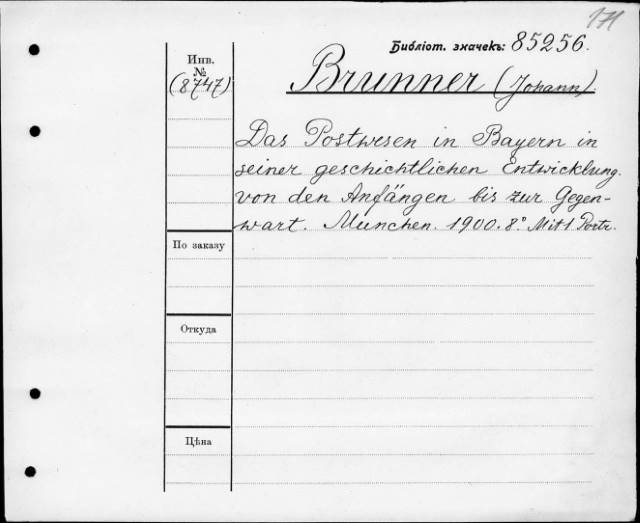 171
Библіот. значекъ: 85256.
Инв.
№
(8747)
Brunner (Johann).
Das Postwesen in Bayern in
seiner geschichtlichen Entwicklung.
von den Anfängen bis zur Gegen-
wart. München. 1900. 8° Mit 1 Portr.
По заказу
Откуда
Цѣна